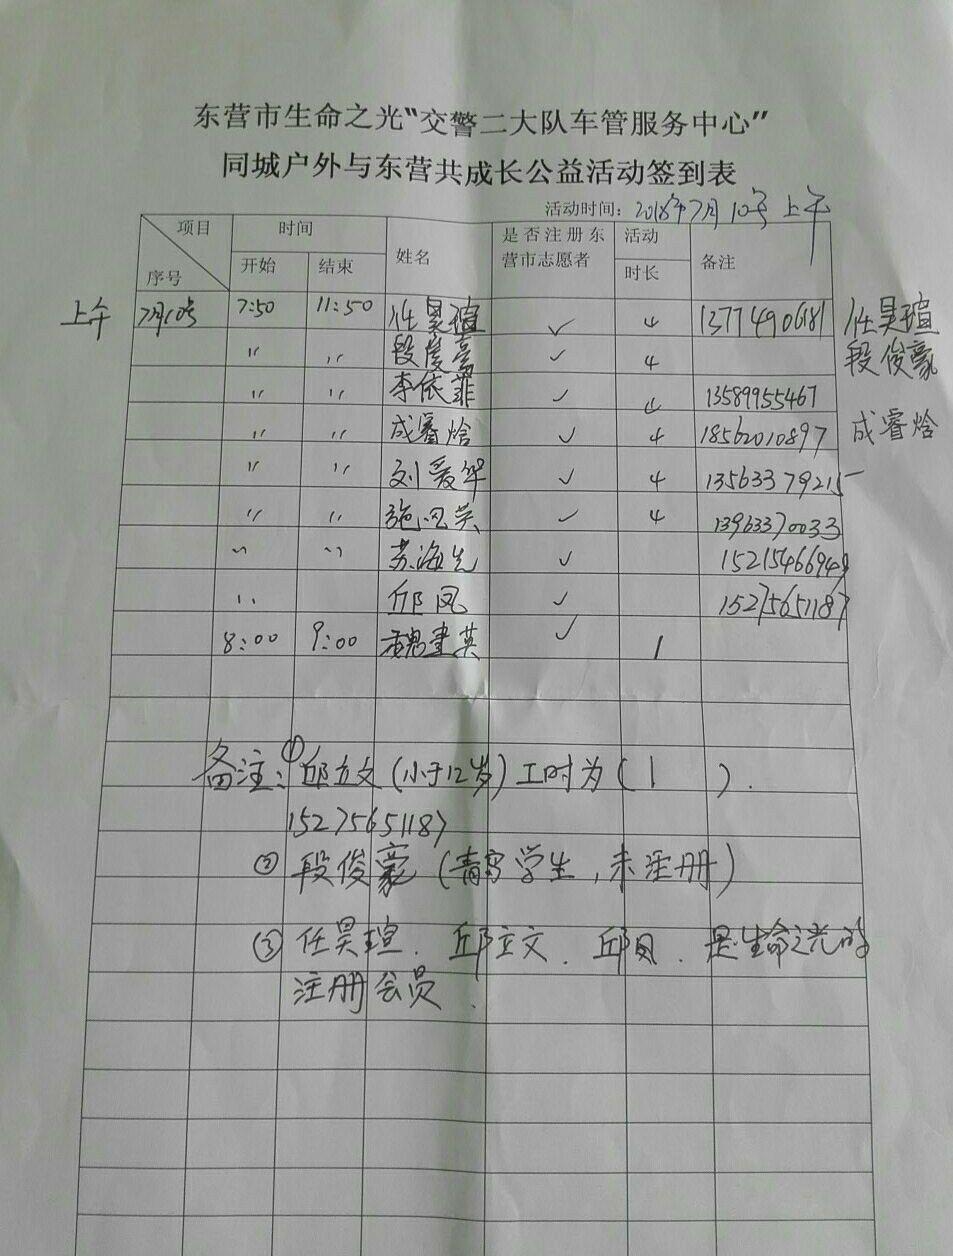 东营市生命之光“交警二大队车管服务中心”
同城户外与东营共成长公益活动签到表
活动时间：2018年7月10号上午
项目 时间 姓名 是否注册东营市志愿者 活动时长 备注
序号 开始 结束
上午 7月10号 7:50 11:50 任昊瑄 ✓ 4 13774490681 任昊瑄
〃 〃 段俊豪 ✓ 4 段俊豪
〃 〃 李依菲 ✓ 4 13589955467
〃 〃 成睿焓 ✓ 4 18562010897 成睿焓
〃 〃 刘爱华 ✓ 4 13563379215
〃 〃 施 ✓ 4 13963370033
〃 〃 苏海先 ✓ 15215466949
〃 邱凤 ✓ 15275651187
8:00 9:00 魏建英 ✓ 1
备注：①邱立文（小于12岁）工时为（1）.
15275651187
② 段俊豪（青岛学生，未注册）
③ 任昊瑄．邱立文．邱凤．是生命之光的
注册会员．